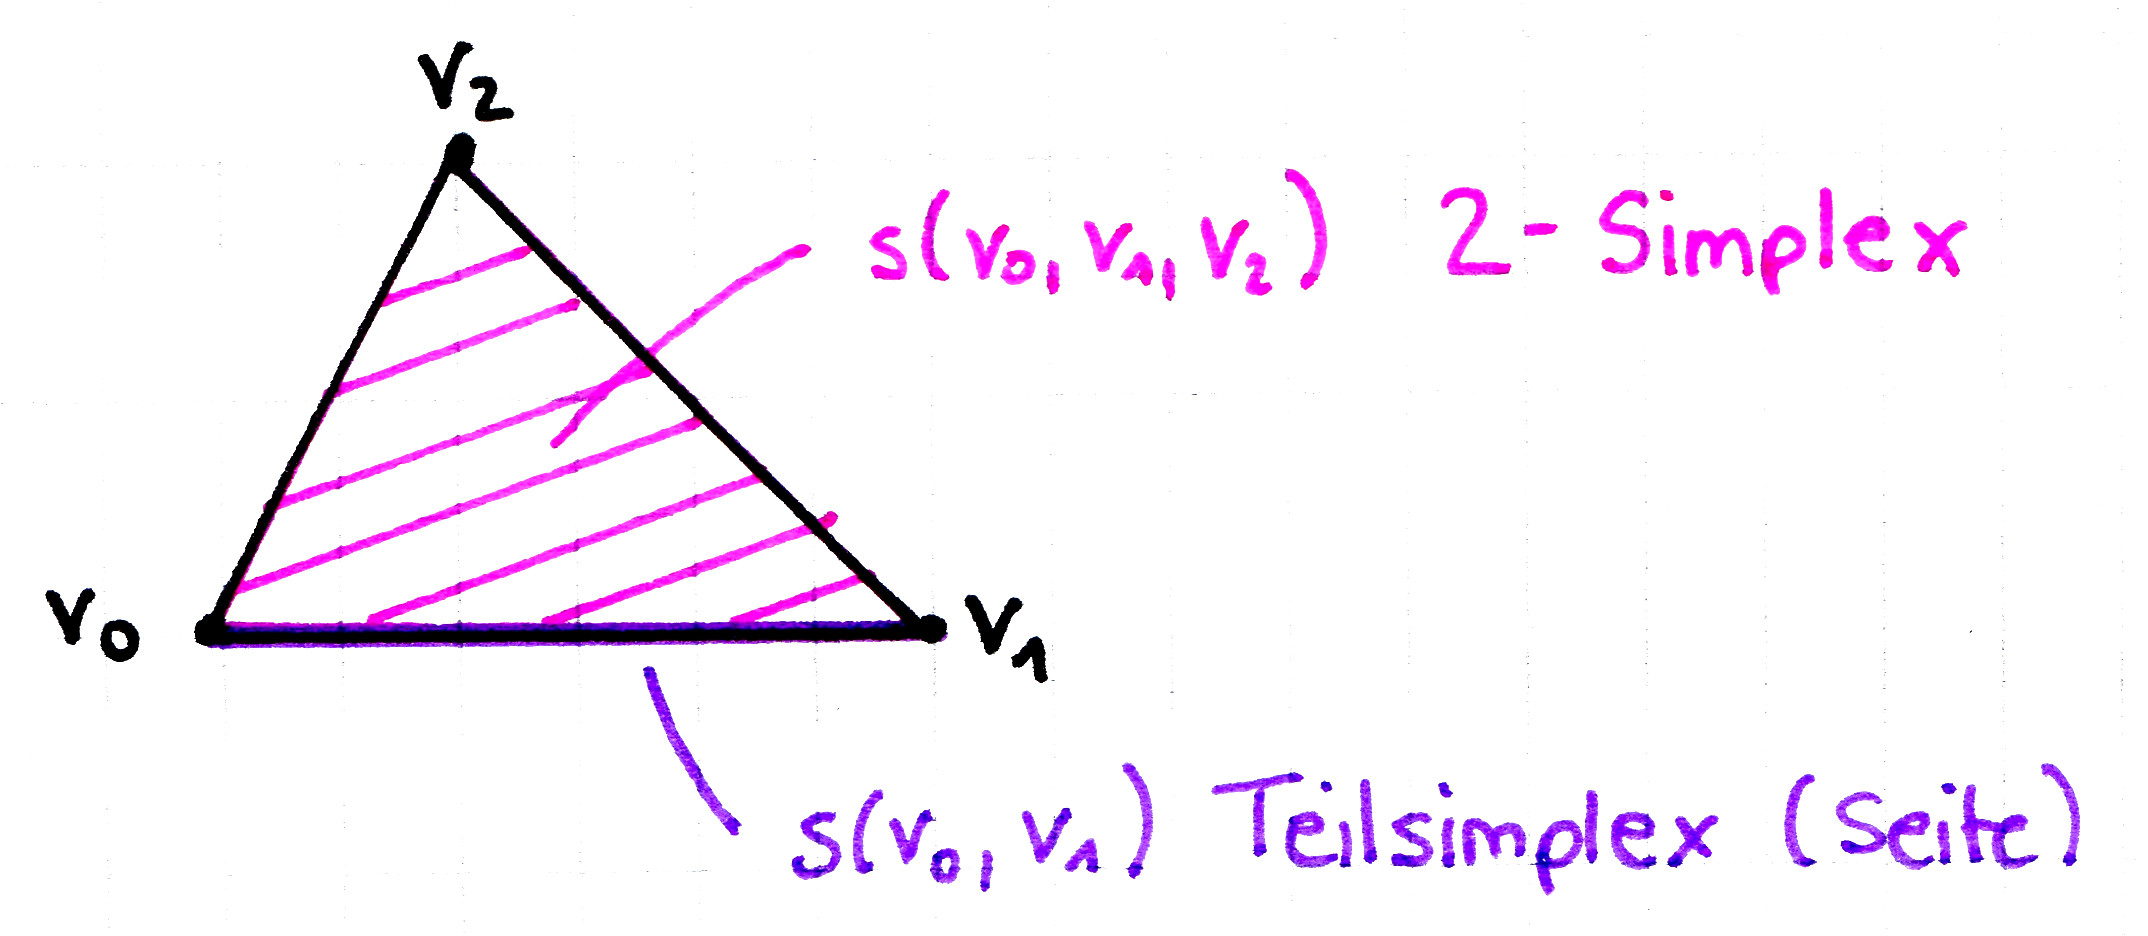 v₂
s(v₀, v₁, v₂) 2-Simplex
v₀
v₁
s(v₀, v₁) Teilsimplex (Seite)